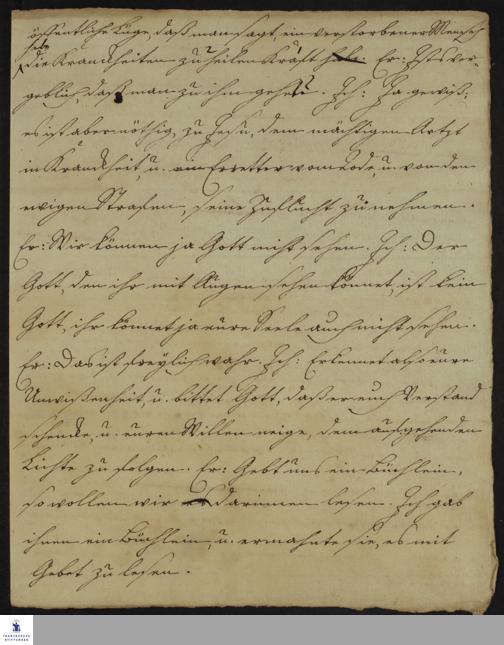 öffentliche Lüge, daß man sagt, ein verstorbener Mensch
habe
die Kranckheiten zu heilen Kraft habe. Er: Ists ver-
geblich, daß man zu ihm gehet? Ich: Ja gewiß;
es ist aber nöthig, zu Jesu, dem mächtigen Artzt
in Kranckheit, u. ein Erretter vom Tode, u. von den
ewigen Strafen, seine Zuflucht zu nehmen.
Er: Wir können ja Gott nicht sehen. Ich: Der
Gott, den ihr mit Augen sehen könnet, ist kein
Gott, ihr könnet ja eure Seele auch nicht sehen.
Er: Das ist freylich wahr. Ich: Erkennet also eure
Unwißenheit, u. bittet Gott, daß er euch Verstand
schencke, u. euren Willen neige, dem aufgehenden
Lichte zu folgen. Er: Gebt uns ein Büchlein,
so wollen wir darinnen lesen. Ich gab
ihnen ein Büchlein, u. ermahnte sie, es mit
Gebet zu lesen.
FRANCKESCHE
STIFTUNGEN